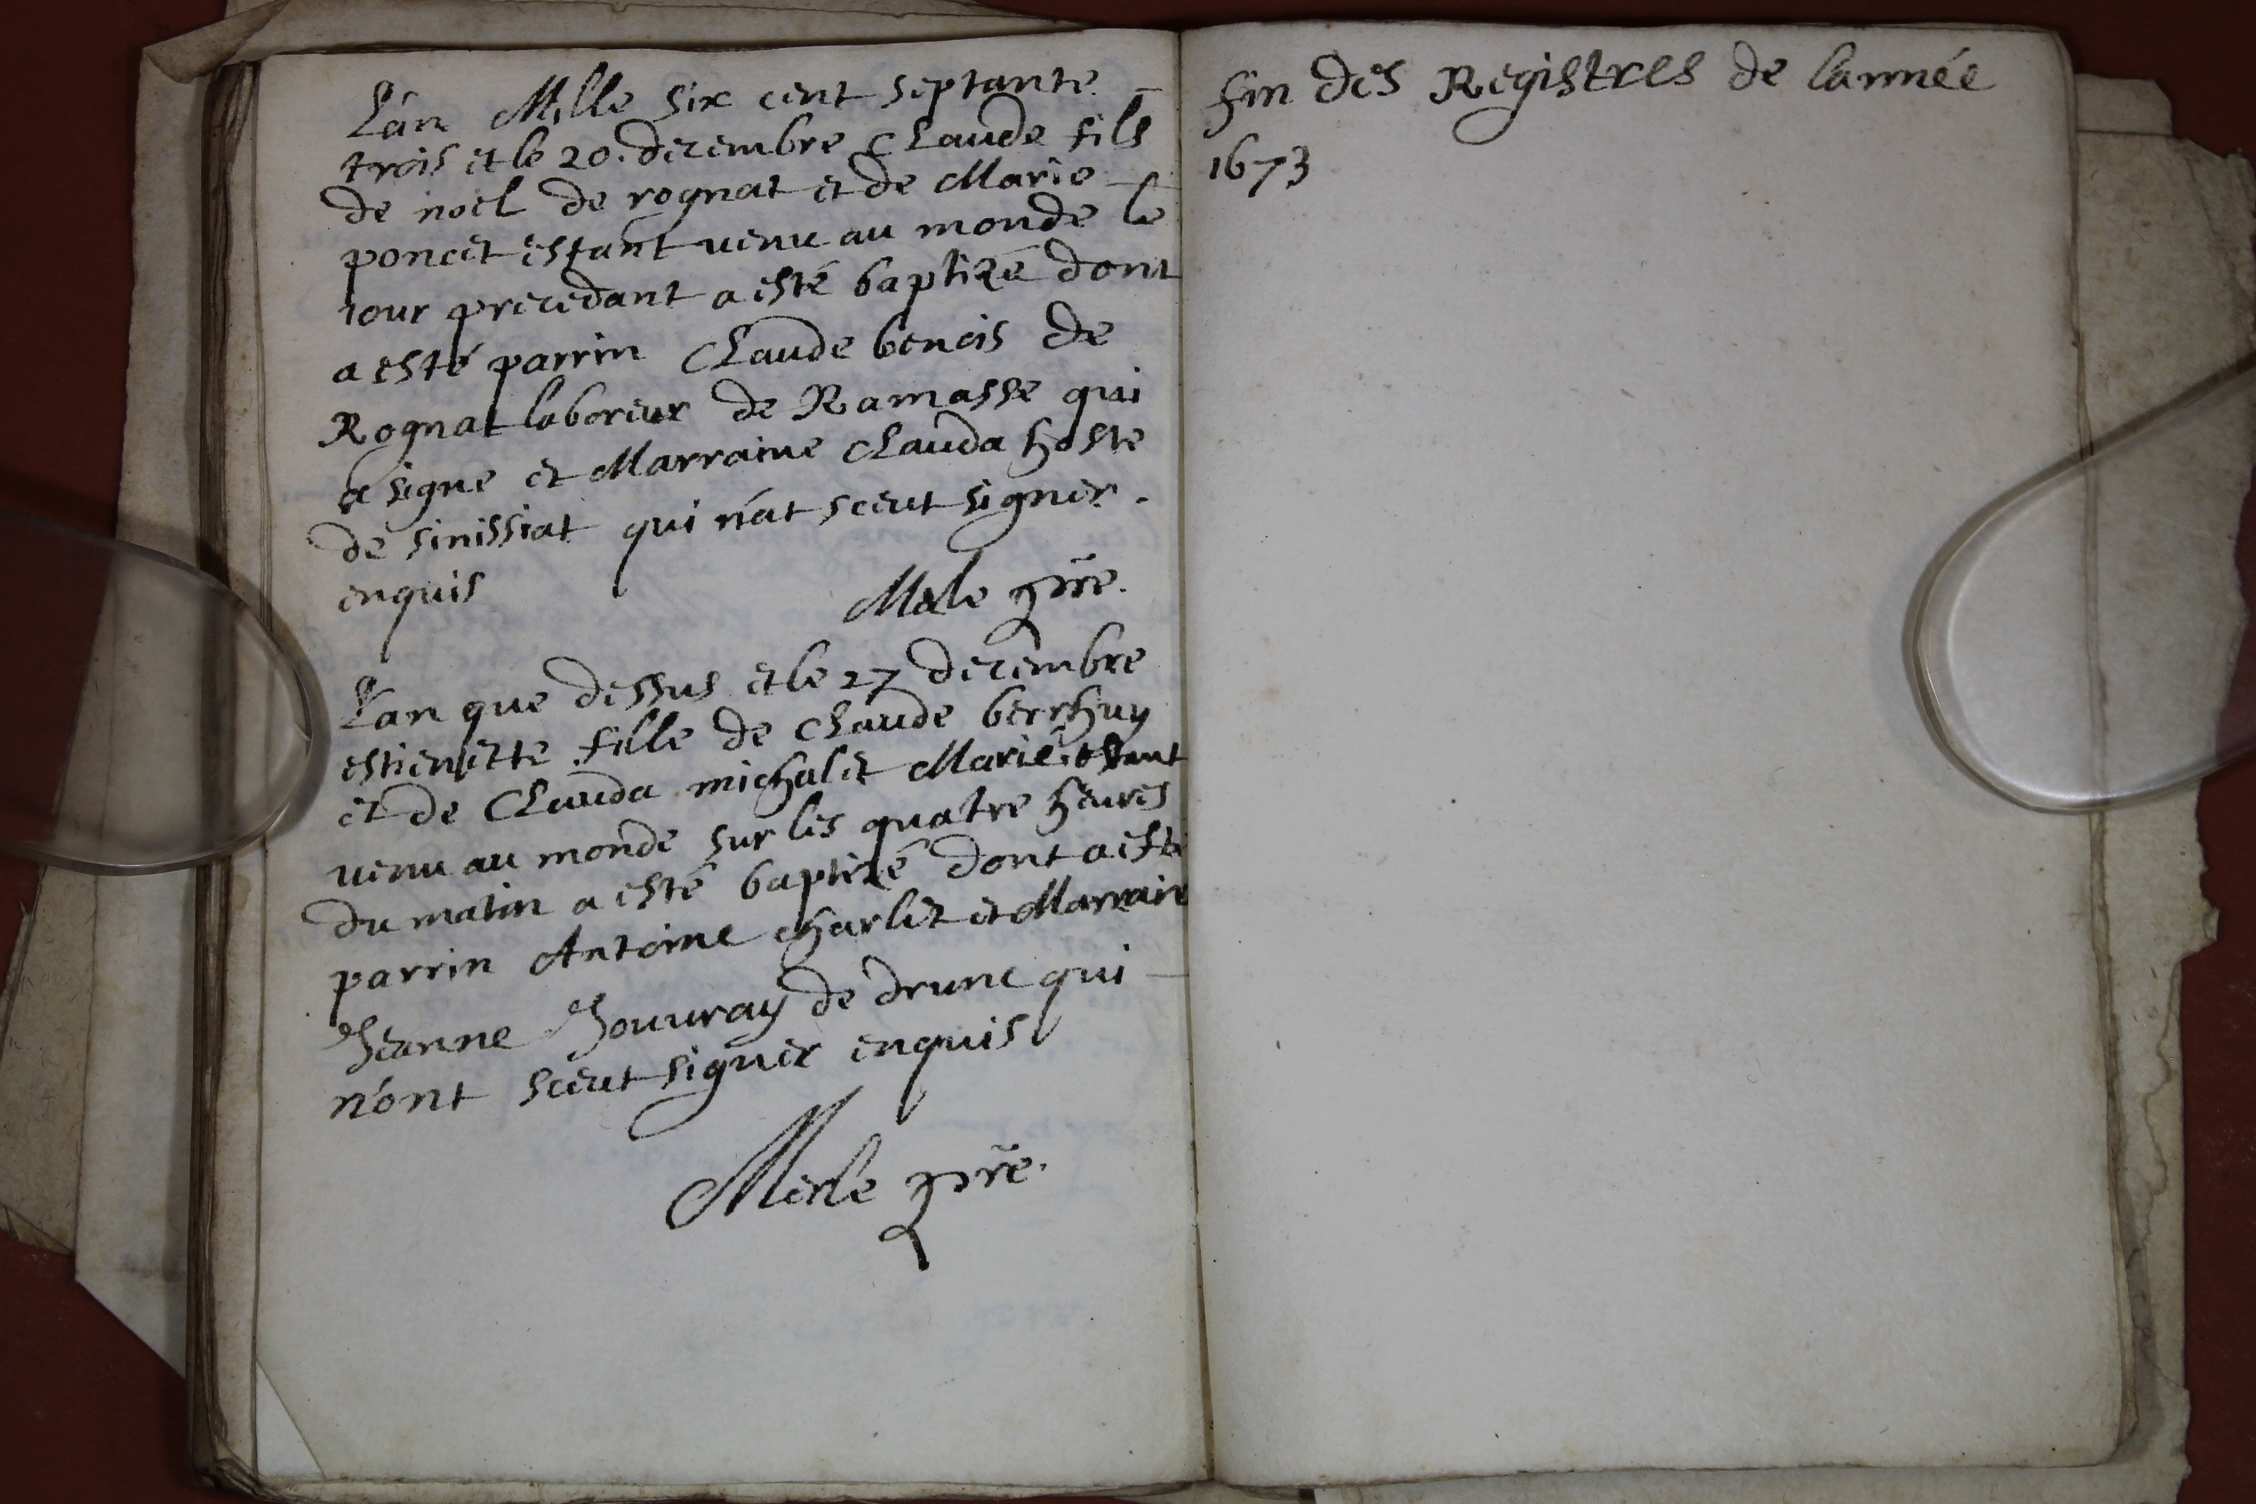 L'an Mille six cent septante
trois et le 20. decembre Claude fils
de noel de rognat et de Marie
poncet estant venu au monde le
iour precedant a esté baptizé dont
a esté parrin Claude benois de
Rognat laboreur de Ramasse qui
a signe et Marraine Clauda hoste
de sinissiat qui n'at sceut signer.
enquis
Merle pr̃e.
L'an que dessus et le 27 decembre
estienette fille de Claude berthuy
et de Clauda michalet Marié estant
venu au monde sur les quatre heures
du matin a esté baptizé dont a esté
parrin Antoine charlet et Marraine
Jeanne Jouuray de drune qui
n'ont sceut signer enquis
Merle pr̃e.
fin des Registres de lannée
1673